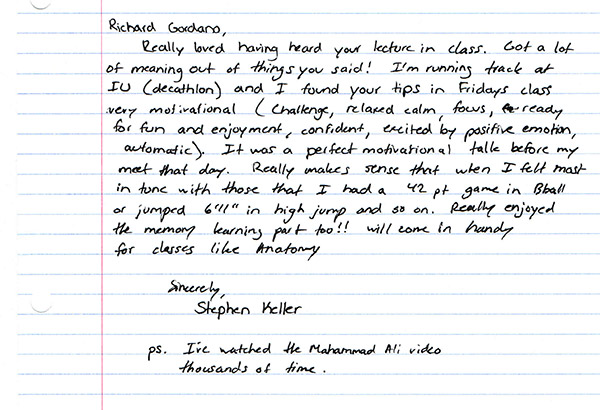 Richard Gordano,
Really loved having heard your lecture in class. Got a lot
of meaning out of things you said! I'm running track at
IU (decathlon) and I found your tips in Fridays class
very motivational (Challenge, relaxed calm, focus, ready
for fun and enjoyment, confident, excited by positive emotion,
automatic). It was a perfect motivational talk before my
meet that day. Really makes sense that when I felt most
in tune with those that I had a 42 pt game in Bball
or jumped 6'11" in high jump and so on. Really enjoyed
the memory learning part too!! will come in handy
for classes like Anatomy
Sincerely,
Stephen Keller
ps. I've watched the Mahammad Ali video
thousands of time.